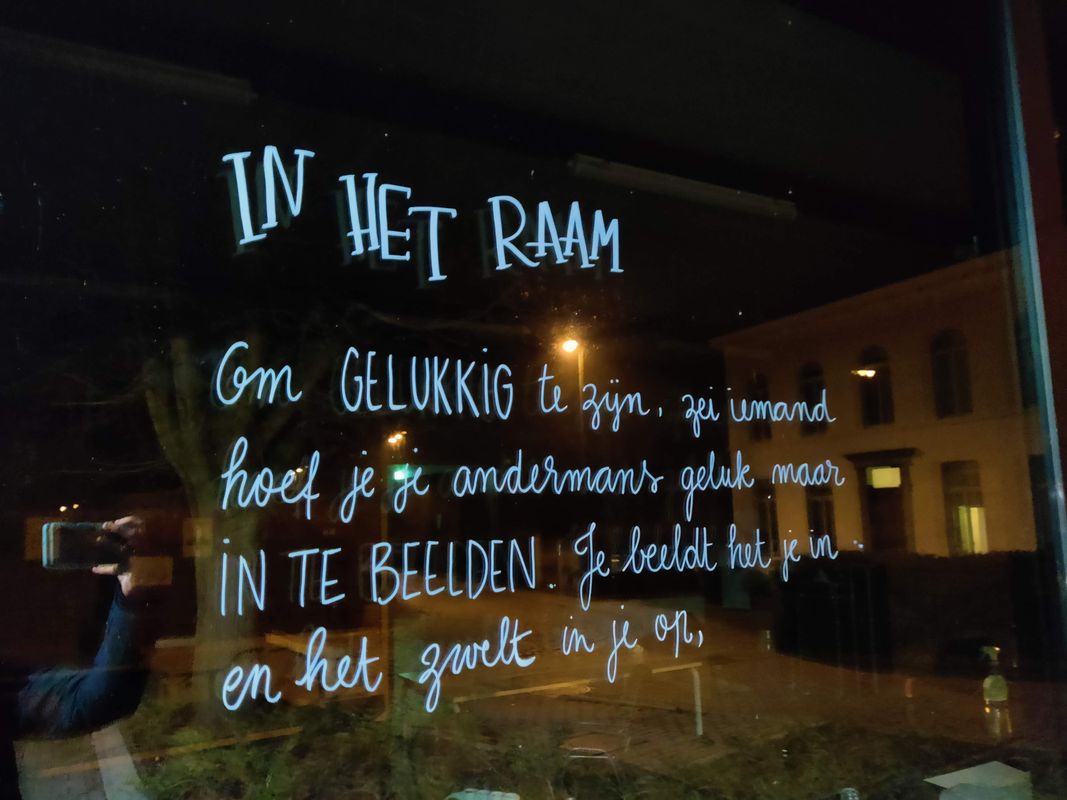 IN HET RAAM
Om GELUKKIG te zijn, zei iemand
hoef je je andermans geluk maar
IN TE BEELDEN. Je beeldt het je in
en het zwelt in je op,